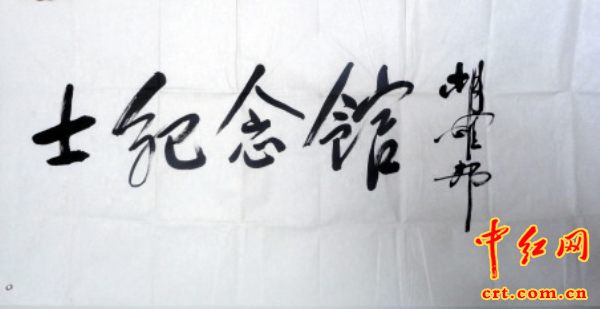 士纪念馆
胡耀邦
中红网
crt.com.cn